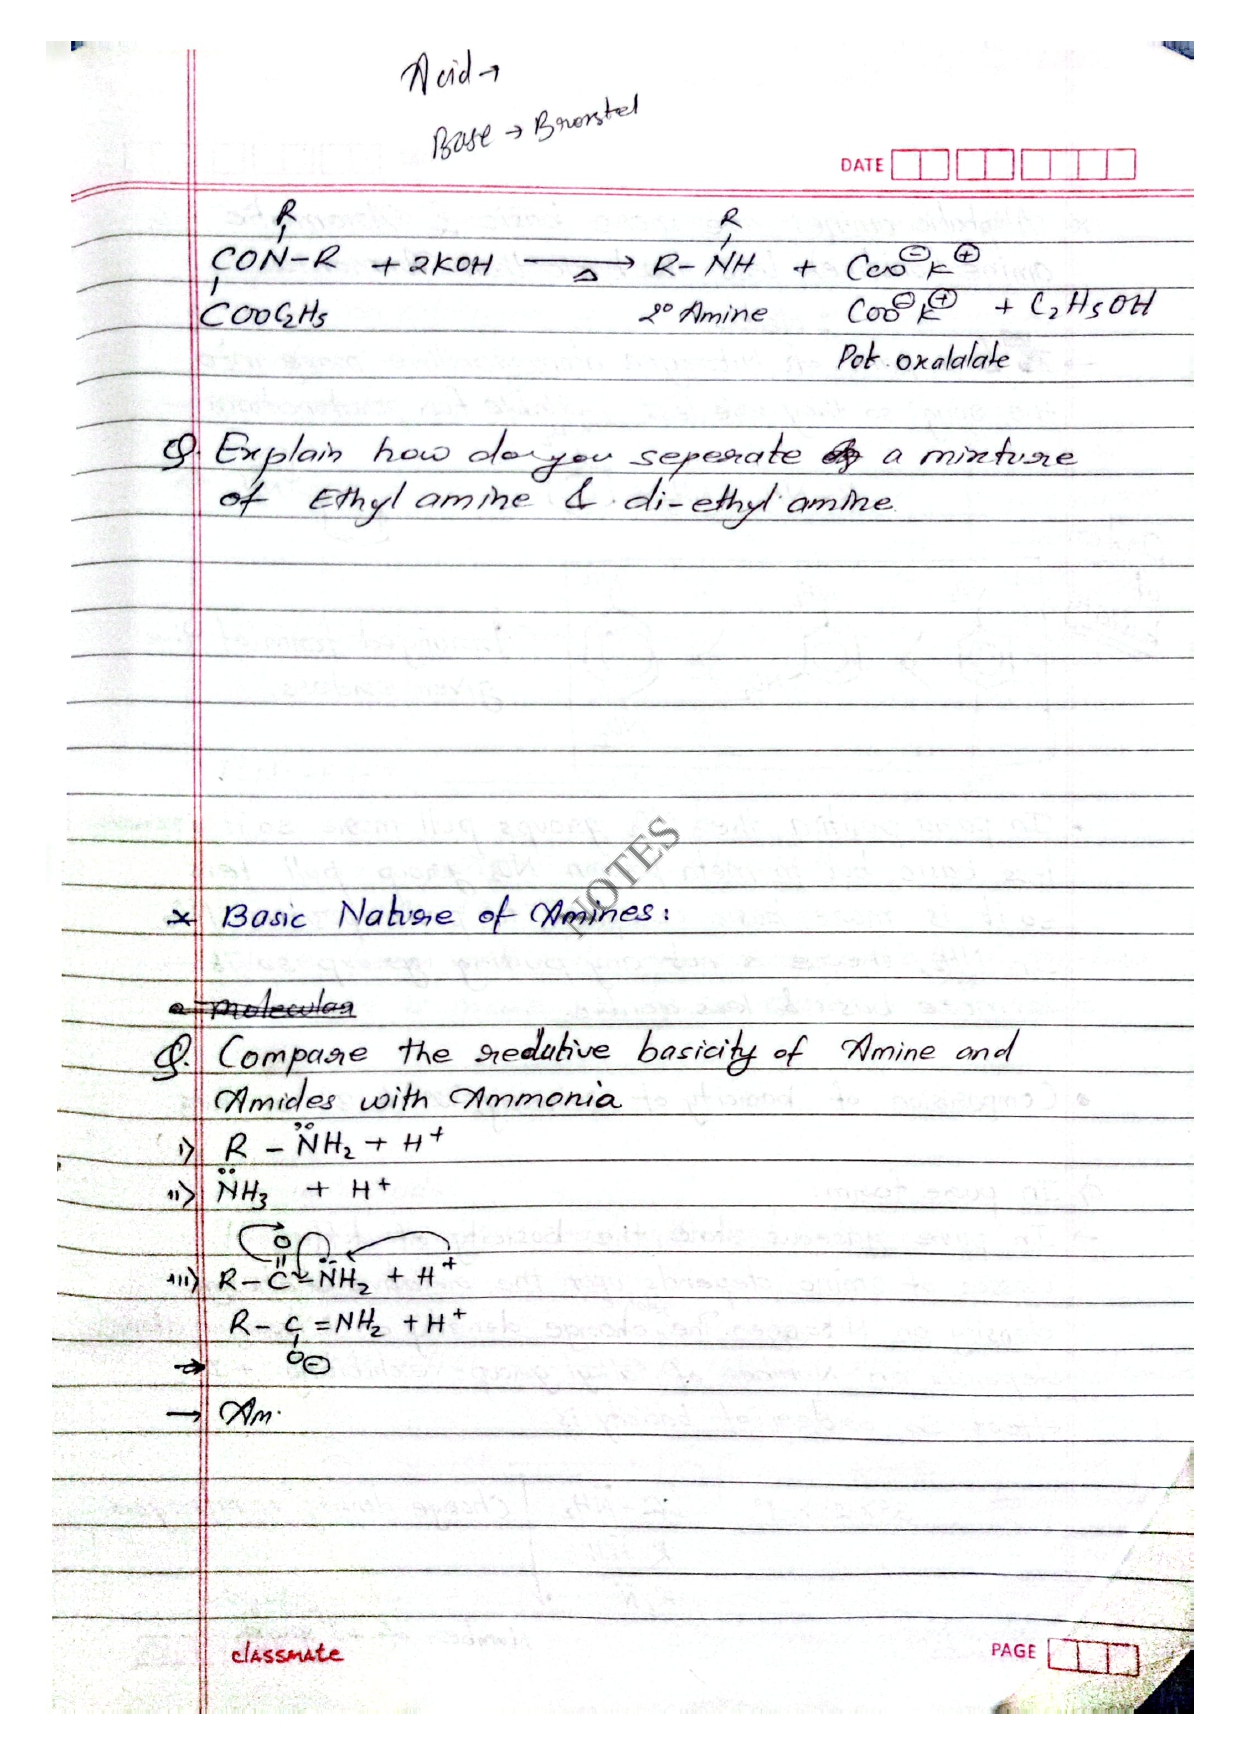 Acid →
Base → Bronsted
DATE
R
CON-R + 2KOH →Δ R-NH + COO⊖K⊕
R
COOC2H5 2° Amine COO⊖K⊕ + C2H5OH
Pot. oxalalate
Q. Explain how do you seperate a mixture
of Ethyl amine & di-ethyl amine.
NOTES
* Basic Nature of Amines:
molecular
Q. Compare the relative basicity of Amine and
Amides with Ammonia
i) R - N̈H2 + H+
ii) N̈H3 + H+
O
iii) R - C - N̈H2 + H+
R - C = NH2 + H+
→ O⊖
→ Am.
classmate
PAGE